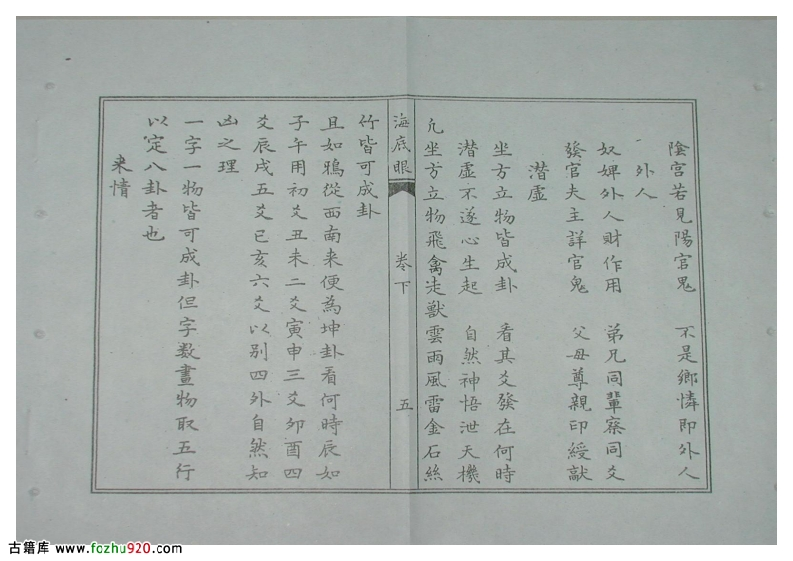 陰宮若見陽官鬼　不是鄉憐即外人
外人
奴婢外人財作用　弟兄同輩察同爻
發官夫主詳官鬼　父母尊親印綬獻
潛虛
坐方立物皆成卦　看其爻發在何時
潛虛不遂心生起　自然神悟泄天機
凡坐方立物飛禽走獸雲雨風雷金石絲
海底眼　卷下　五
竹皆可成卦
且如鴉從西南來便為坤卦看何時辰如
子午用初爻丑未二爻寅申三爻夘酉四
爻辰戌五爻已亥六爻以别四外自然知
凶之理
一字一物皆可成卦但字数畫物取五行
以定八卦者也
来情
古籍库 www.fozhu920.com